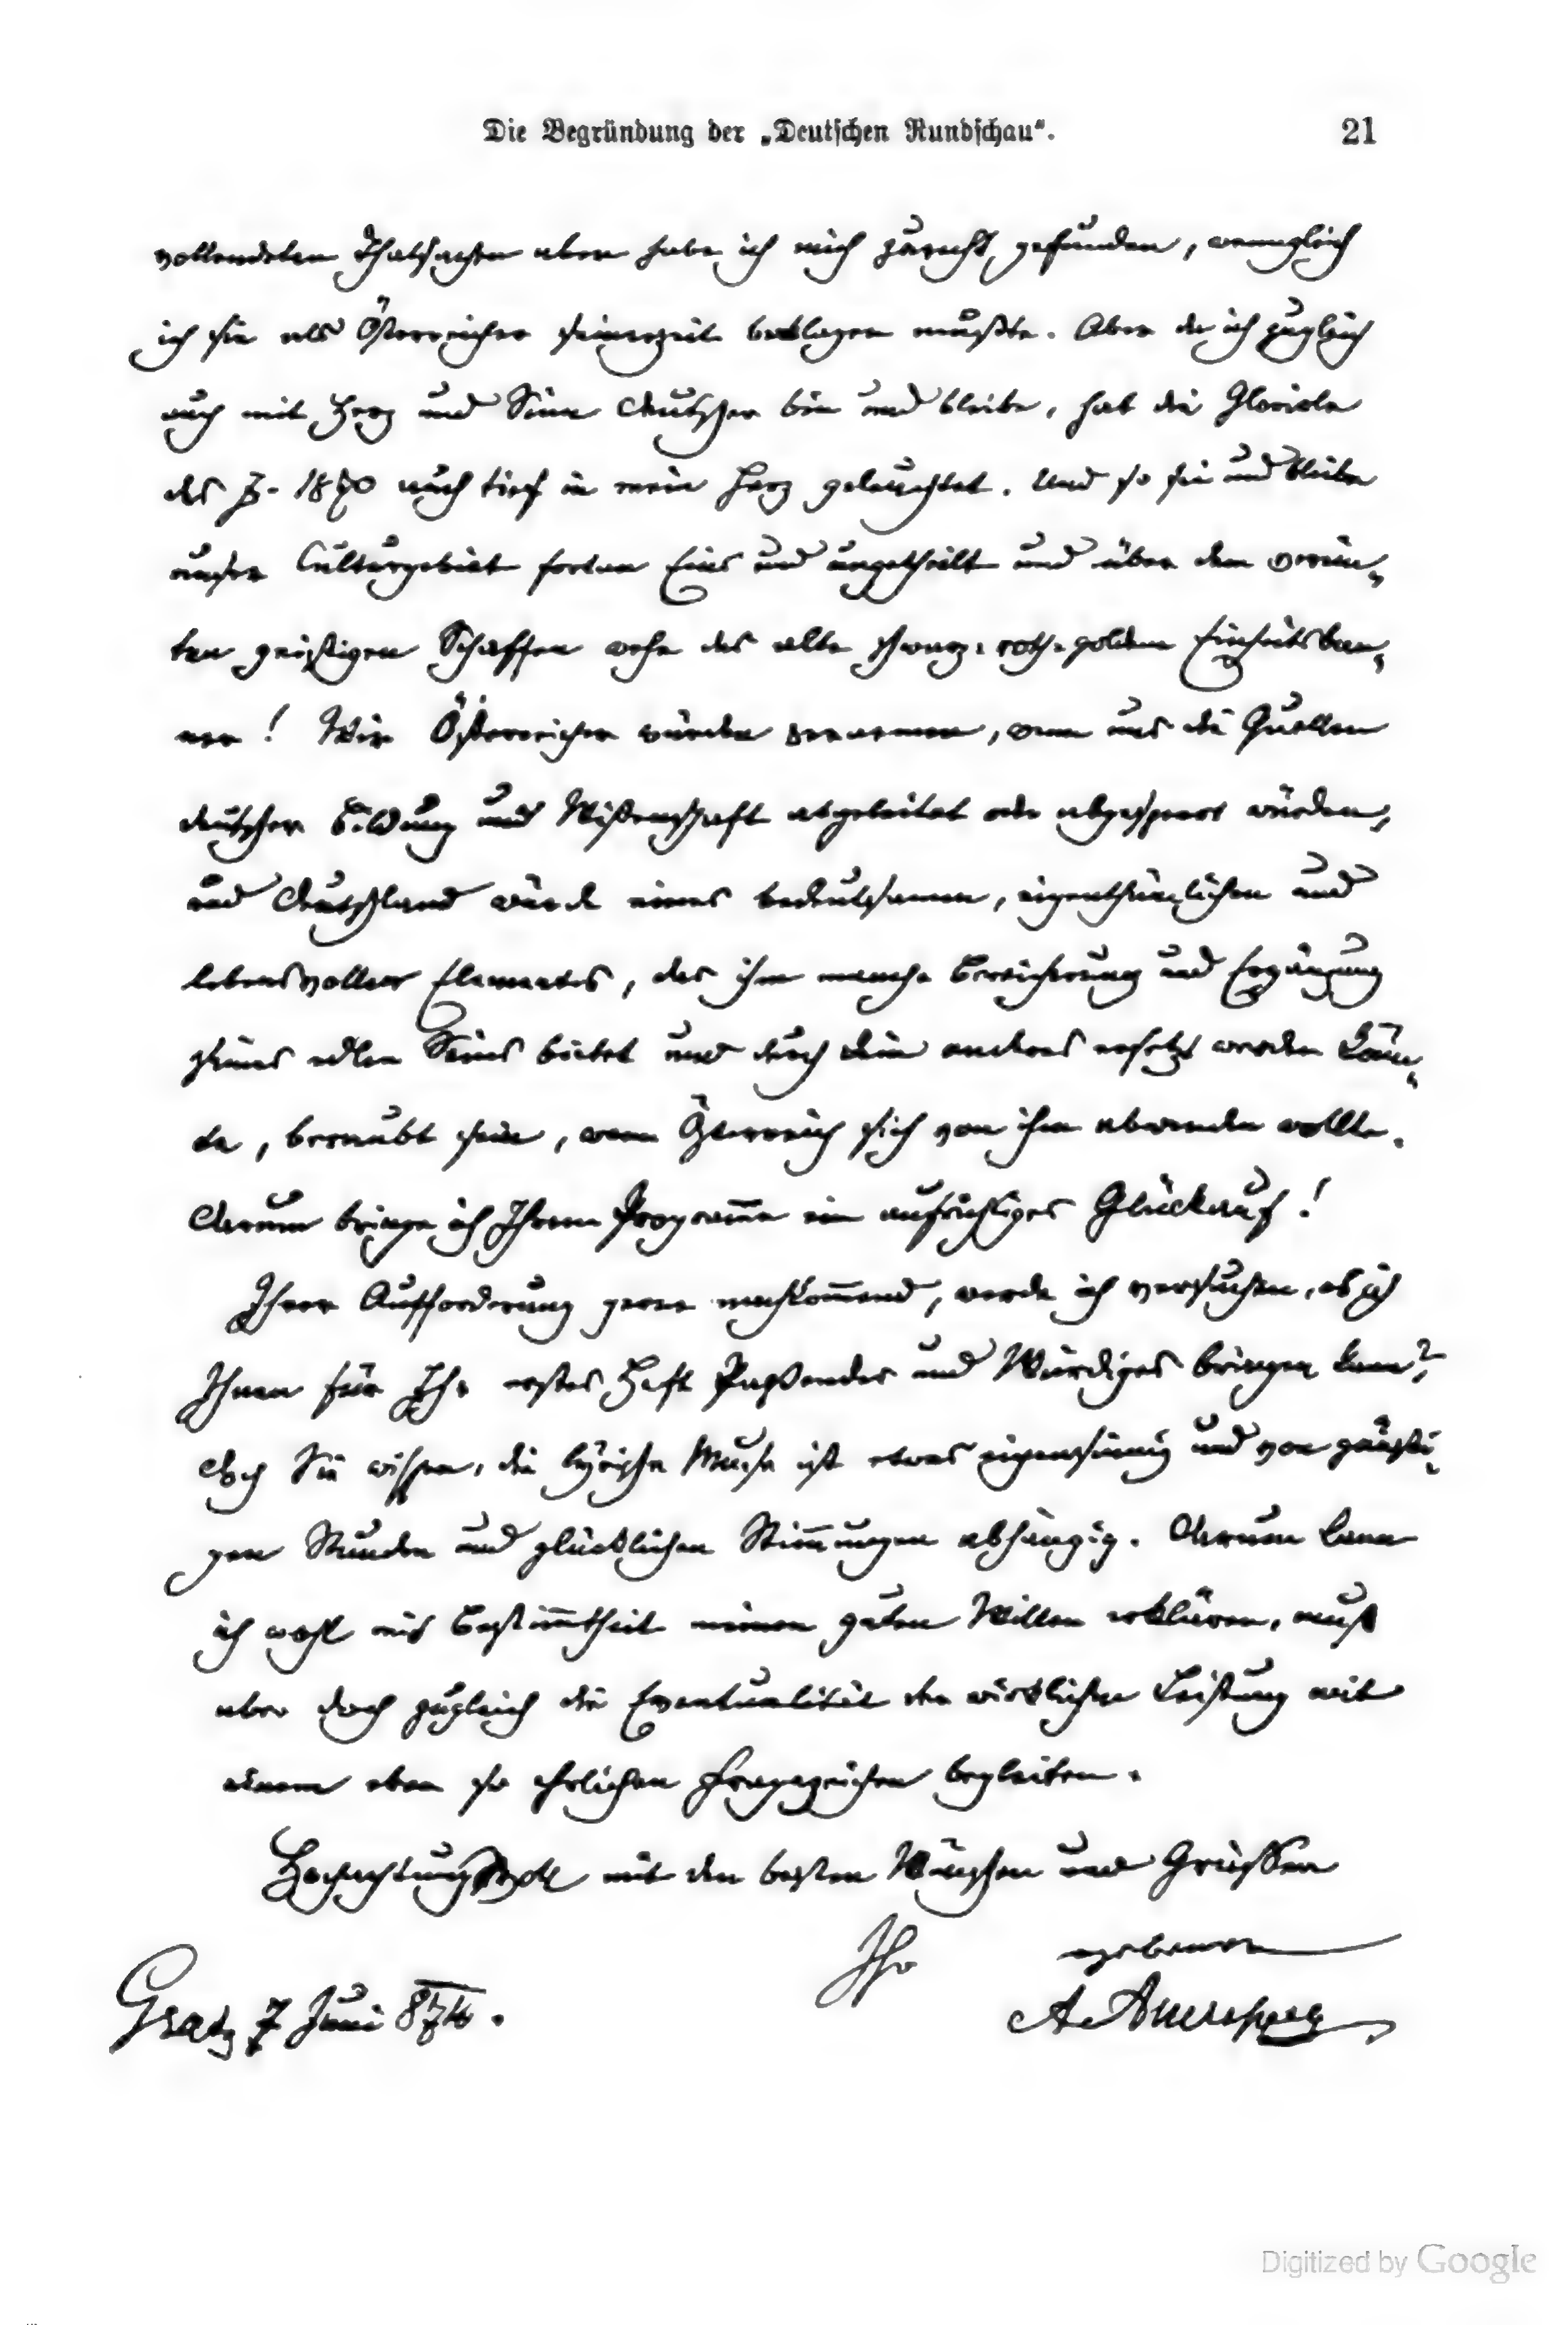 Die Begründung der „Deutschen Rundschau“. 21
vollendeten Thatsachen aber habe ich mich zurecht gefunden, wenngleich
ich sie als Österreicher seinerzeit beklagen mußte. Aber da ich zugleich
auch mit Herz und Sinn Deutscher bin und bleibe, hat die Gloriole
des J. 1870 auch tief in mein Herz geleuchtet. Und so sei und bleibe
unser Culturgebiet fortan Eins und ungetheilt und über dem verein-
ten geistigen Schaffen wehe das alte schwarz-roth-goldene Einheitsban-
ner! Wir Österreicher würden verarmen, wenn uns die Quellen
deutscher Bildung und Wißenschaft abgeleitet oder abgesperrt würden,
und Deutschland würde eines bedeutsamen, eigenthümlichen und
lebensvollen Elementes, das ihm manche Bereicherung und Ergänzung
seines edlen Seins bietet und durch kein anderes ersetzt werden könn-
te, beraubt sein, wenn Österreich sich von ihm abwenden wollte.
Darum bringe ich Ihrem Programme ein aufrichtiges Glückauf!
Ihrer Aufforderung gerne nachkom̅end, werde ich versuchen, ob ich
Ihnen für Ihr erstes Heft Paßendes und Würdiges bringen kann?
Doch Sie wissen, die lyrische Muse ist etwas eigensinnig und von günsti-
gen Stunden und glücklichen Stim̅ungen abhängig. Darum kann
ich wohl mit Bestim̅theit meinen guten Willen erklären, muß
aber doch zugleich die Eventualität der wirklichen Leistung mit
einem eben so ehrlichen Fragezeichen begleiten.
Hochachtungsvoll mit den besten Wünschen und Grüssen
Ihr ergebener
Gratz 7 Juni 874. A. Auersperg
Digitized by Google